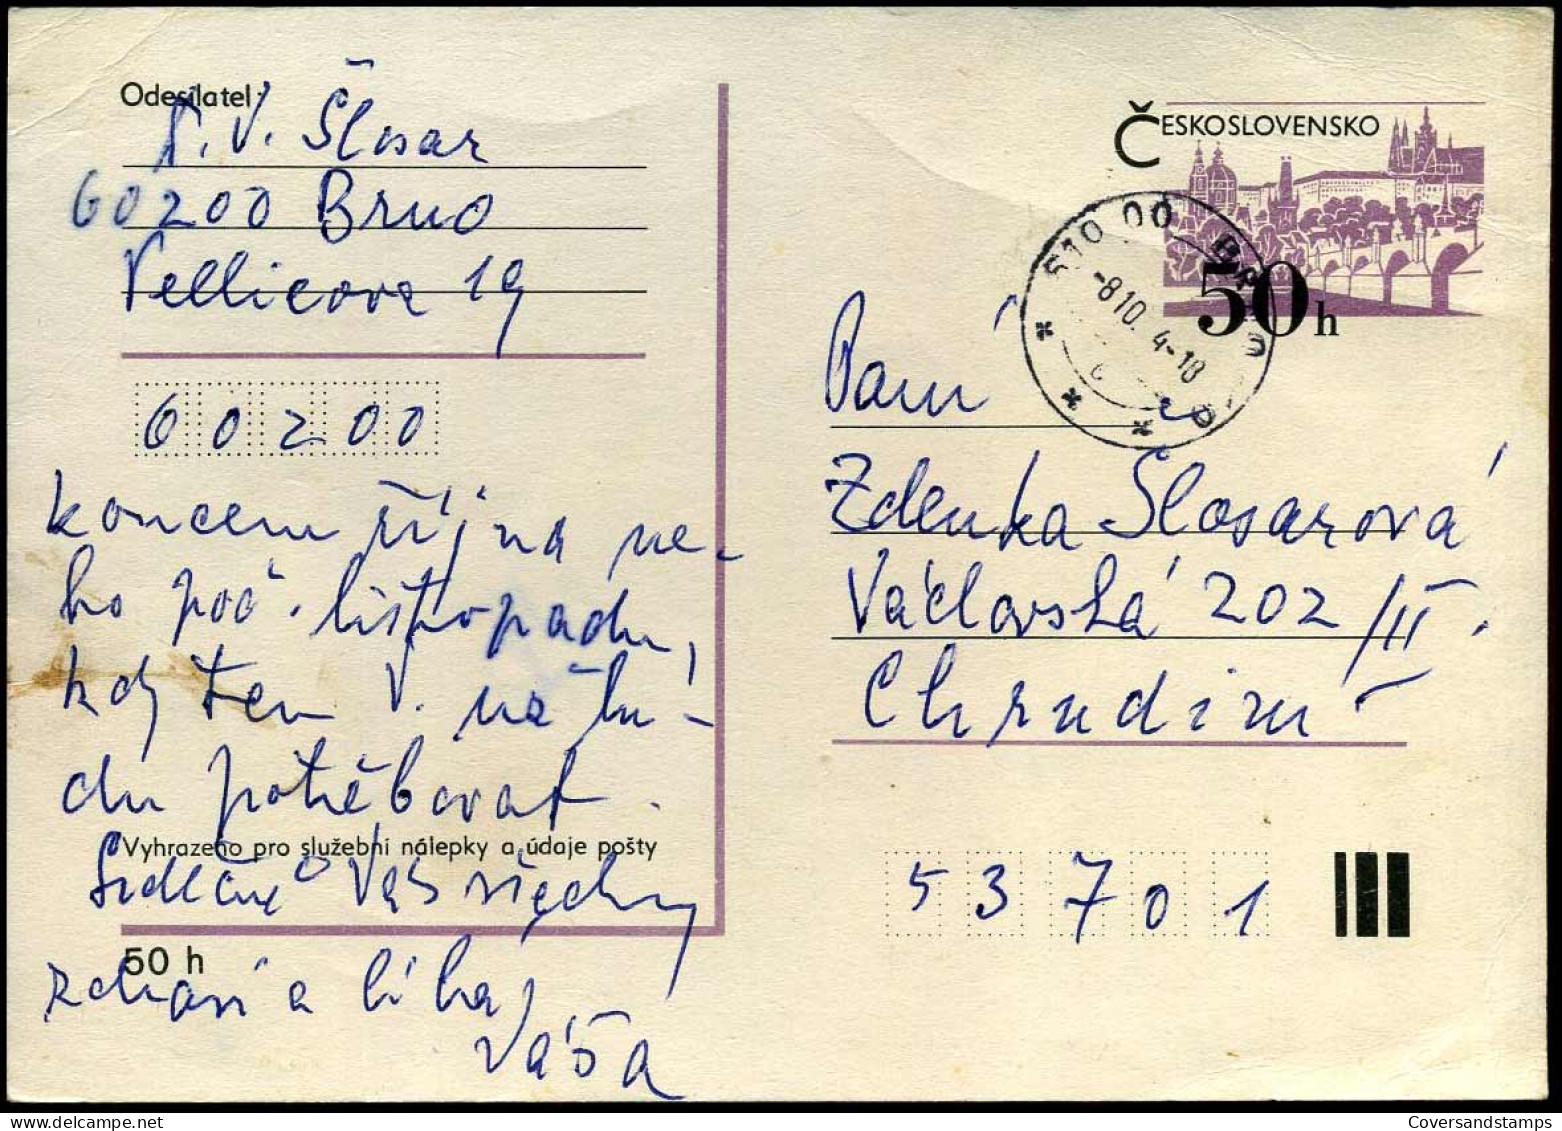 Odesílatel:
V. Šlosar
60200 Brno
19
60200
koncem října ne-
bo poč. listopadu,
kdy ten V. už bu-
du potřebovat.
Vyhrazeno pro služební nálepky a údaje pošty
Srdečně Vás všechny
50 h
zdraví a líbá
Váša
ČESKOSLOVENSKO
50 h
-8.10. 4-18
Paní
Zdenka Šlosarová
Václavská 202/II.
Chrudim
53701
Coversandstamps